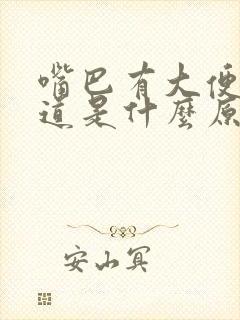 嘴巴有大便
道是什麼原
安山冥